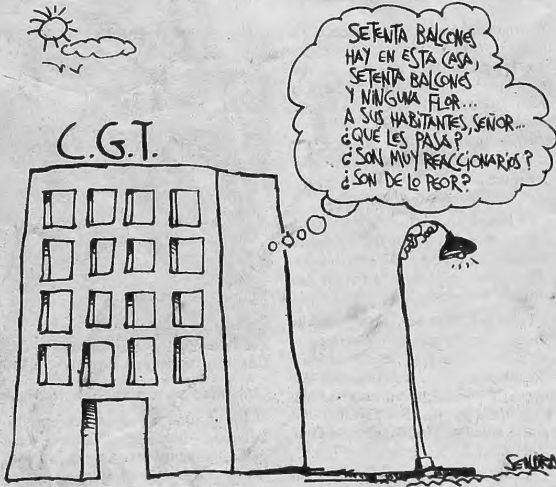 C.G.T.
SETENTA BALCONES
HAY EN ESTA CASA,
SETENTA BALCONES
Y NINGUNA FLOR...
A SUS HABITANTES, SEÑOR...
¿QUÉ LES PASA?
¿SON MUY REACCIONARIOS?
¿SON DE LO PEOR?
SENDRA